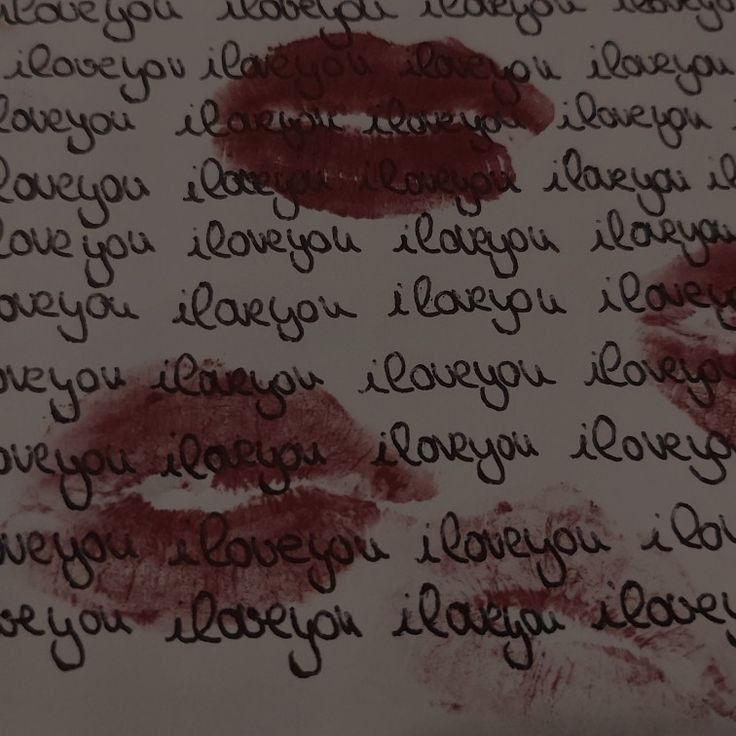 iloveyou iloveyou iloveyou iloveyou
iloveyou iloveyou iloveyou iloveyou
loveyou iloveyou iloveyou iloveyou
loveyou iloveyou iloveyou iloveyou il
love you iloveyou iloveyou iloveyou
oveyou iloveyou iloveyou iloveyou
oveyou iloveyou iloveyou iloveyou
oveyou iloveyou iloveyou iloveyo
oveyou iloveyou iloveyou ilov
veyou iloveyou iloveyou ilovey